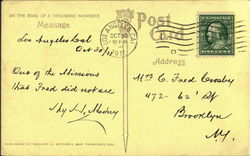 ON THE ROAD OF A THOUSAND WONDERS
Post Card
Message
Address
LOS ANGELES, CAL.
OCT 30
1911
Los Angeles Cal
Oct 30/11
One of the Missions
that Fred did not see
Mrs C. Fred Crosby
472- 62' St
Brooklyn
N.Y.
PUBLISHED BY EDWARD H. MITCHELL SAN FRANCISCO, CAL.